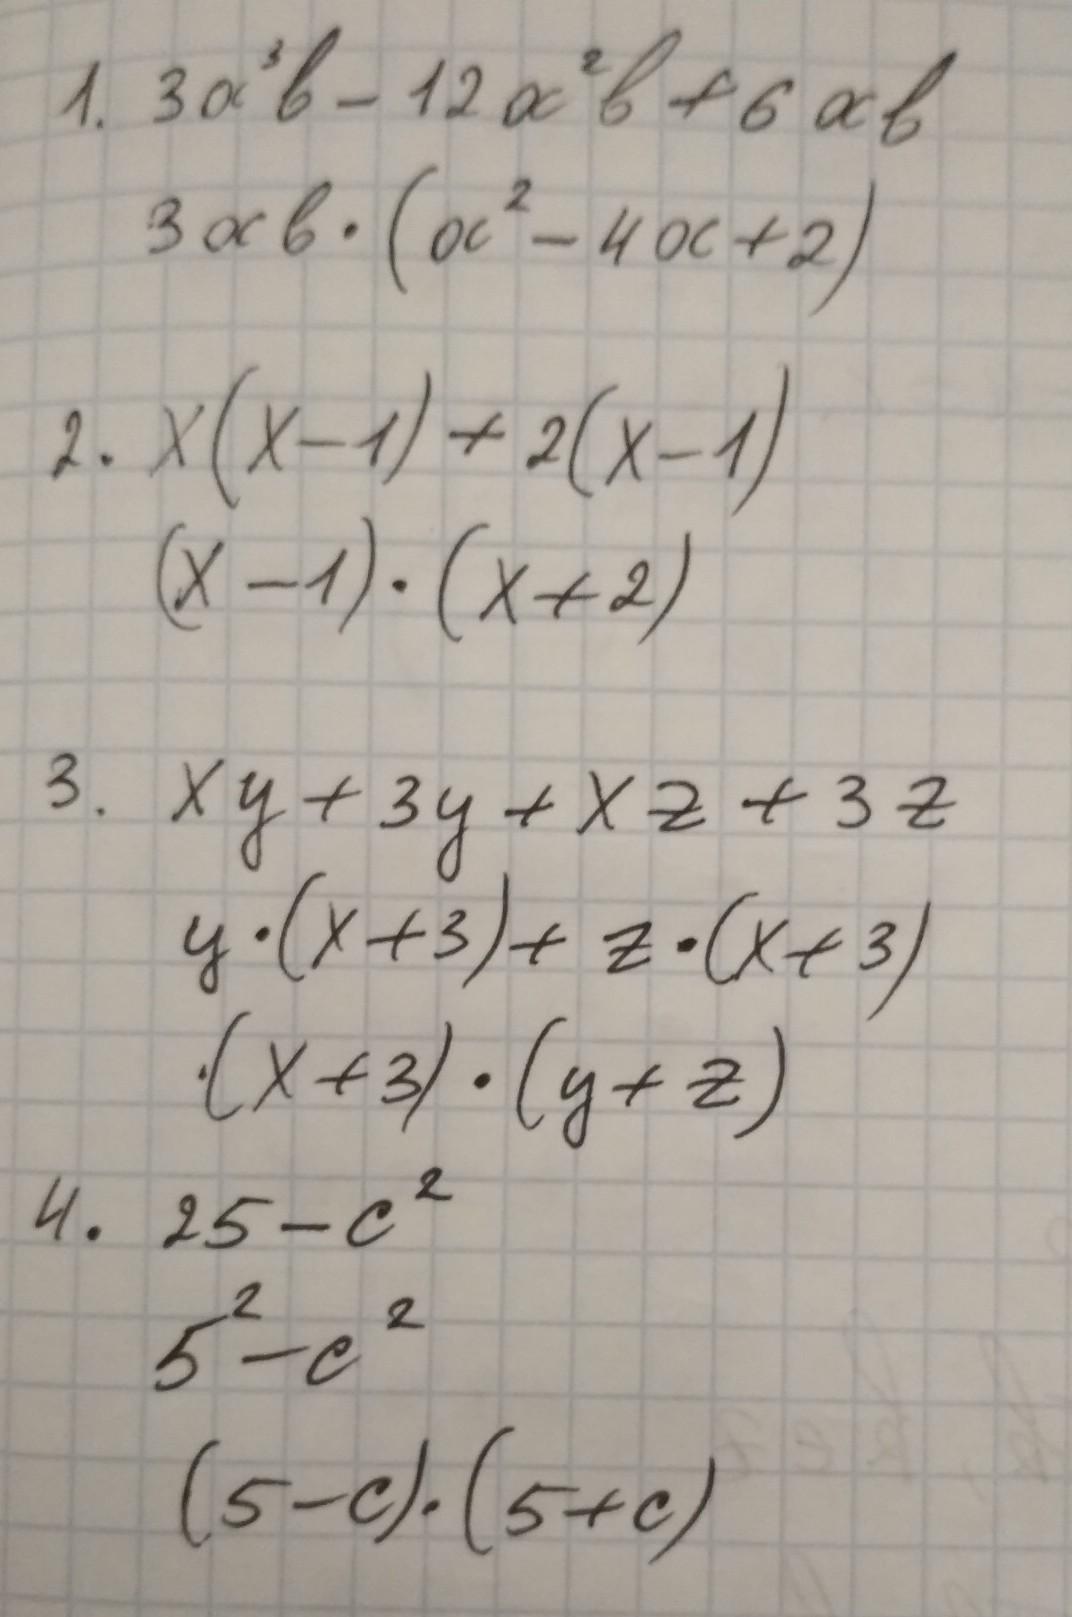 1. 3a³b - 12a²b + 6ab
3ab · (a² - 4a + 2)
2. x(x - 1) + 2(x - 1)
(x - 1) · (x + 2)
3. xy + 3y + xz + 3z
y · (x + 3) + z · (x + 3)
(x + 3) · (y + z)
4. 25 - c²
5² - c²
(5 - c) · (5 + c)